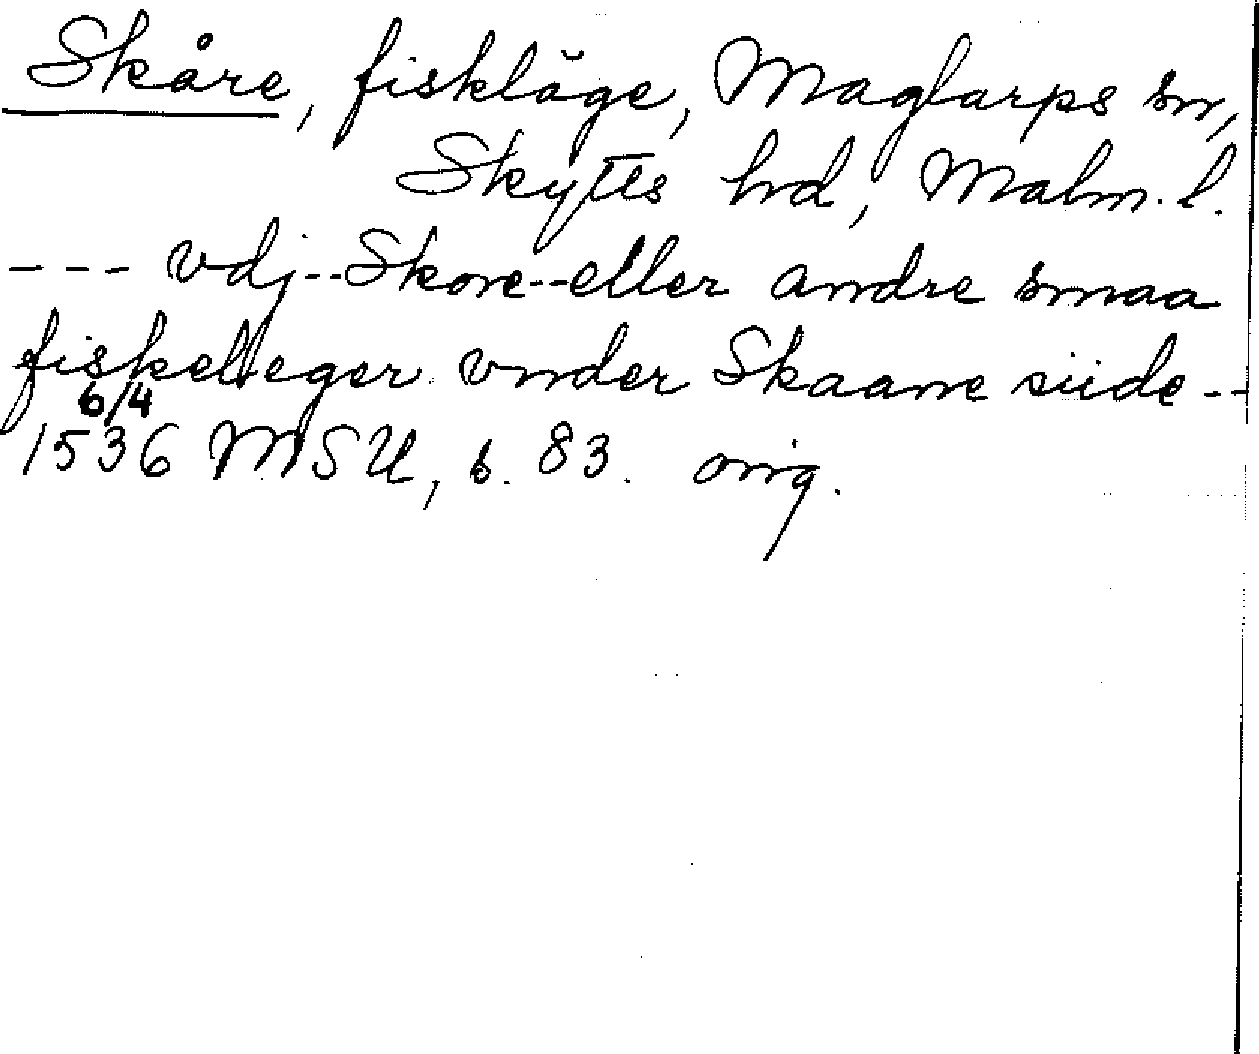 Skåre, fiskläge, Maglarps sn,
Skytts hd, Malm. l.
--- vdj--Skore--eller andre smaa
fiskelleger vnder Skaane siide--
6/4
1536 MSU, s. 83. orig.